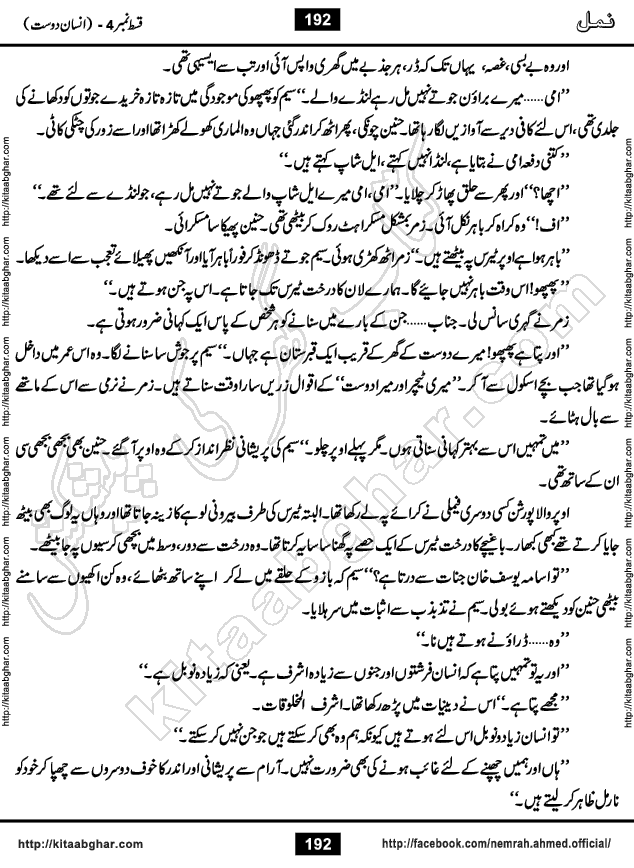 نمل
192
قسط نمبر 4 - (انسان دوست)
اور وہ بے بسی، غصہ، یہاں تک کہ ڈر، ہر جذبے میں گھری واپس آئی اور تب سے ایسی ہی تھی۔
’’امی......میرے براؤن جوتے نہیں مل رہے لنڈے والے۔‘‘ سیم کو پھپھو کی موجودگی میں تازہ تازہ خریدے جوتوں کو دکھانے کی
جلدی تھی، اس لئے کافی دیر سے آوازیں لگا رہا تھا۔ حنین چونکی، پھر اٹھ کر اندر گئی جہاں وہ الماری کھولے کھڑا تھا اور اسے زور کی چٹکی کاٹی۔
’’کتنی دفعہ امی نے بتایا ہے، لنڈا نہیں کہتے، ایل شاپ کہتے ہیں۔‘‘
’’اچھا؟‘‘ اور پھر سے حلق پھاڑ کر چلایا۔ ’’امی، امی میرے ایل شاپ والے جوتے نہیں مل رہے، جو لنڈے سے لئے تھے۔‘‘
’’اف!‘‘ وہ کراہ کر باہر نکل آئی۔ زمر بمشکل مسکراہٹ روک کر بیٹھی تھی۔ حنین پھیکا سا مسکرائی۔
’’باہر ہوا ہے اوپر ٹیرس پہ بیٹھتے ہیں۔‘‘ زمر اٹھ کھڑی ہوئی۔ سیم جوتے ڈھونڈ کر فوراً باہر آیا اور آنکھیں پھیلائے تعجب سے اسے دیکھا۔
’’پھپھو! اس وقت باہر نہیں جائیے گا۔ ہمارے لان کا درخت ٹیرس تک جاتا ہے۔ اس پہ جن ہوتے ہیں۔‘‘
زمر نے گہری سانس لی۔ جناب......جن کے بارے میں سنانے کو ہر شخص کے پاس ایک کہانی ضرور ہوتی ہے۔
’’اور پتا ہے پھپھو! میرے دوست کے گھر کے قریب ایک قبرستان ہے جہاں۔‘‘ سیم پر جوش سا سنانے لگا۔ وہ اس عمر میں داخل
ہو گیا تھا جب بچے اسکول سے آ کر۔ ’’میری ٹیچر اور میرا دوست‘‘ کے اقوال زریں سارا وقت سناتے ہیں۔ زمر نے نرمی سے اس کے ماتھے
سے بال ہٹائے۔
’’میں تمہیں اس سے بہتر کہانی سناتی ہوں۔ مگر پہلے اوپر چلو۔‘‘ سیم کی پریشانی نظر انداز کر کے وہ اوپر آ گئے۔ حنین بھی بجھی بجھی سی
ان کے ساتھ تھی۔
اوپر والا پورشن کسی دوسری فیملی نے کرائے پہ لے رکھا تھا۔ البتہ ٹیرس کی طرف بیرونی لوہے کا زینہ جاتا تھا اور وہاں یہ لوگ بھی بیٹھ
جایا کرتے تھے کبھی کبھار۔ باغیچے کا درخت ٹیرس کے ایک حصے پہ گھنا سا سایہ کرتا تھا۔ وہ درخت سے دور، وسط میں بچھی کرسیوں پہ جا بیٹھے۔
’’تو اسامہ یوسف خان جنات سے ڈرتا ہے؟‘‘ سیم کہ بازو کے حلقے میں لے کر اپنے ساتھ بٹھائے، وہ کن اکھیوں سے سامنے
بیٹھی حنین کو دیکھتے ہوئے بولی۔ سیم نے تذبذب سے اثبات میں سر ہلایا۔
’’وہ......ڈراؤنے ہوتے ہیں نا۔‘‘
’’اور یہ تو تمہیں پتا ہے کہ انسان فرشتوں اور جنوں سے زیادہ اشرف ہے۔ یعنی کہ زیادہ نوبل ہے۔‘‘
’’مجھے پتا ہے۔‘‘ اس نے دینیات میں پڑھ رکھا تھا۔ اشرف المخلوقات۔
’’تو انسان زیادہ نوبل اس لئے ہوتے ہیں کیونکہ ہم وہ بھی کر سکتے ہیں جو جن نہیں کر سکتے۔‘‘
’’ہاں اور ہمیں چھپنے کے لئے غائب ہونے کی بھی ضرورت نہیں۔ آرام سے پریشانی اور اندر کا خوف دوسروں سے چھپا کر خود کو
نارمل ظاہر کر لیتے ہیں۔‘‘
http://kitaabghar.com
http://kitaabghar.com
http://kitaabghar.com
http://kitaabghar.com
http://kitaabghar.com
http://kitaabghar.com
http://kitaabghar.com
http://kitaabghar.com
http://kitaabghar.com
http://kitaabghar.com
http://kitaabghar.com
http://kitaabghar.com
کتاب گھر کی پیشکش
kitaabghar.com
http://kitaabghar.com
192
http://facebook.com/nemrah.ahmed.official/